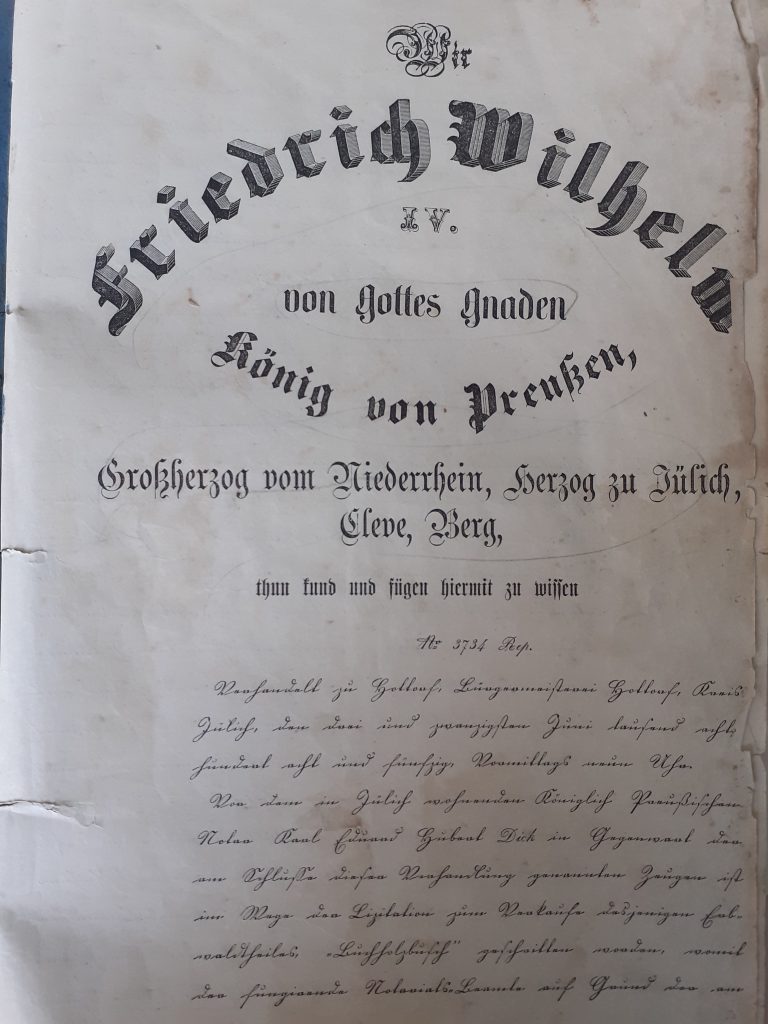 Wir
Friedrich Wilhelm
IV.
von Gottes Gnaden
König von Preußen,
Großherzog vom Niederrhein, Herzog zu Jülich,
Cleve, Berg,
thun kund und fügen hiermit zu wissen
No 3734 Rep.
Verhandelt zu Hottorf, Bürgermeisterei Hottorf, Kreis
Jülich, den drei und zwanzigsten Juni tausend acht
hundert acht und fünfzig, Vormittags neun Uhr.
Vor dem in Jülich wohnenden Königlich Preußischen
Notar Karl Eduard Hubert Dick in Gegenwart der
am Schlusse dieser Verhandlung genannten Zeugen ist
im Wege der Lizitation zum Verkaufe desjenigen Erb-
waldtheiles, „Buchholzbusch" geschritten worden, womit
der fungirende Notariats-Beamte auf Grund der am